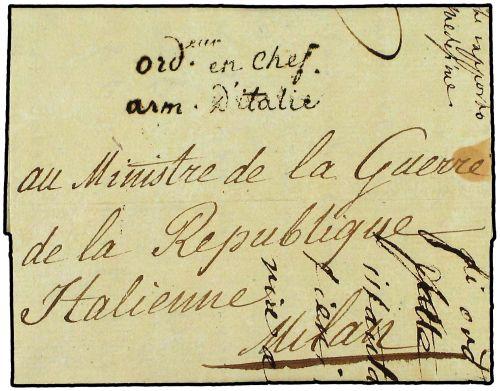 ord.eur en chef.
arm. d'italie
au Ministre de la Guerre
de la Republique
Italienne
Milan
rapporto